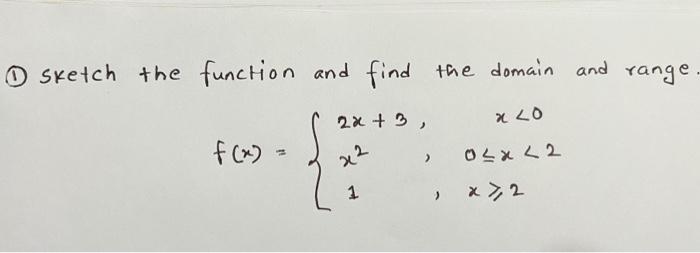 ① sketch the function and find the domain and range.
f(x) = { 2x + 3 , x < 0
x² , 0 ≤ x < 2
1 , x ⩾ 2